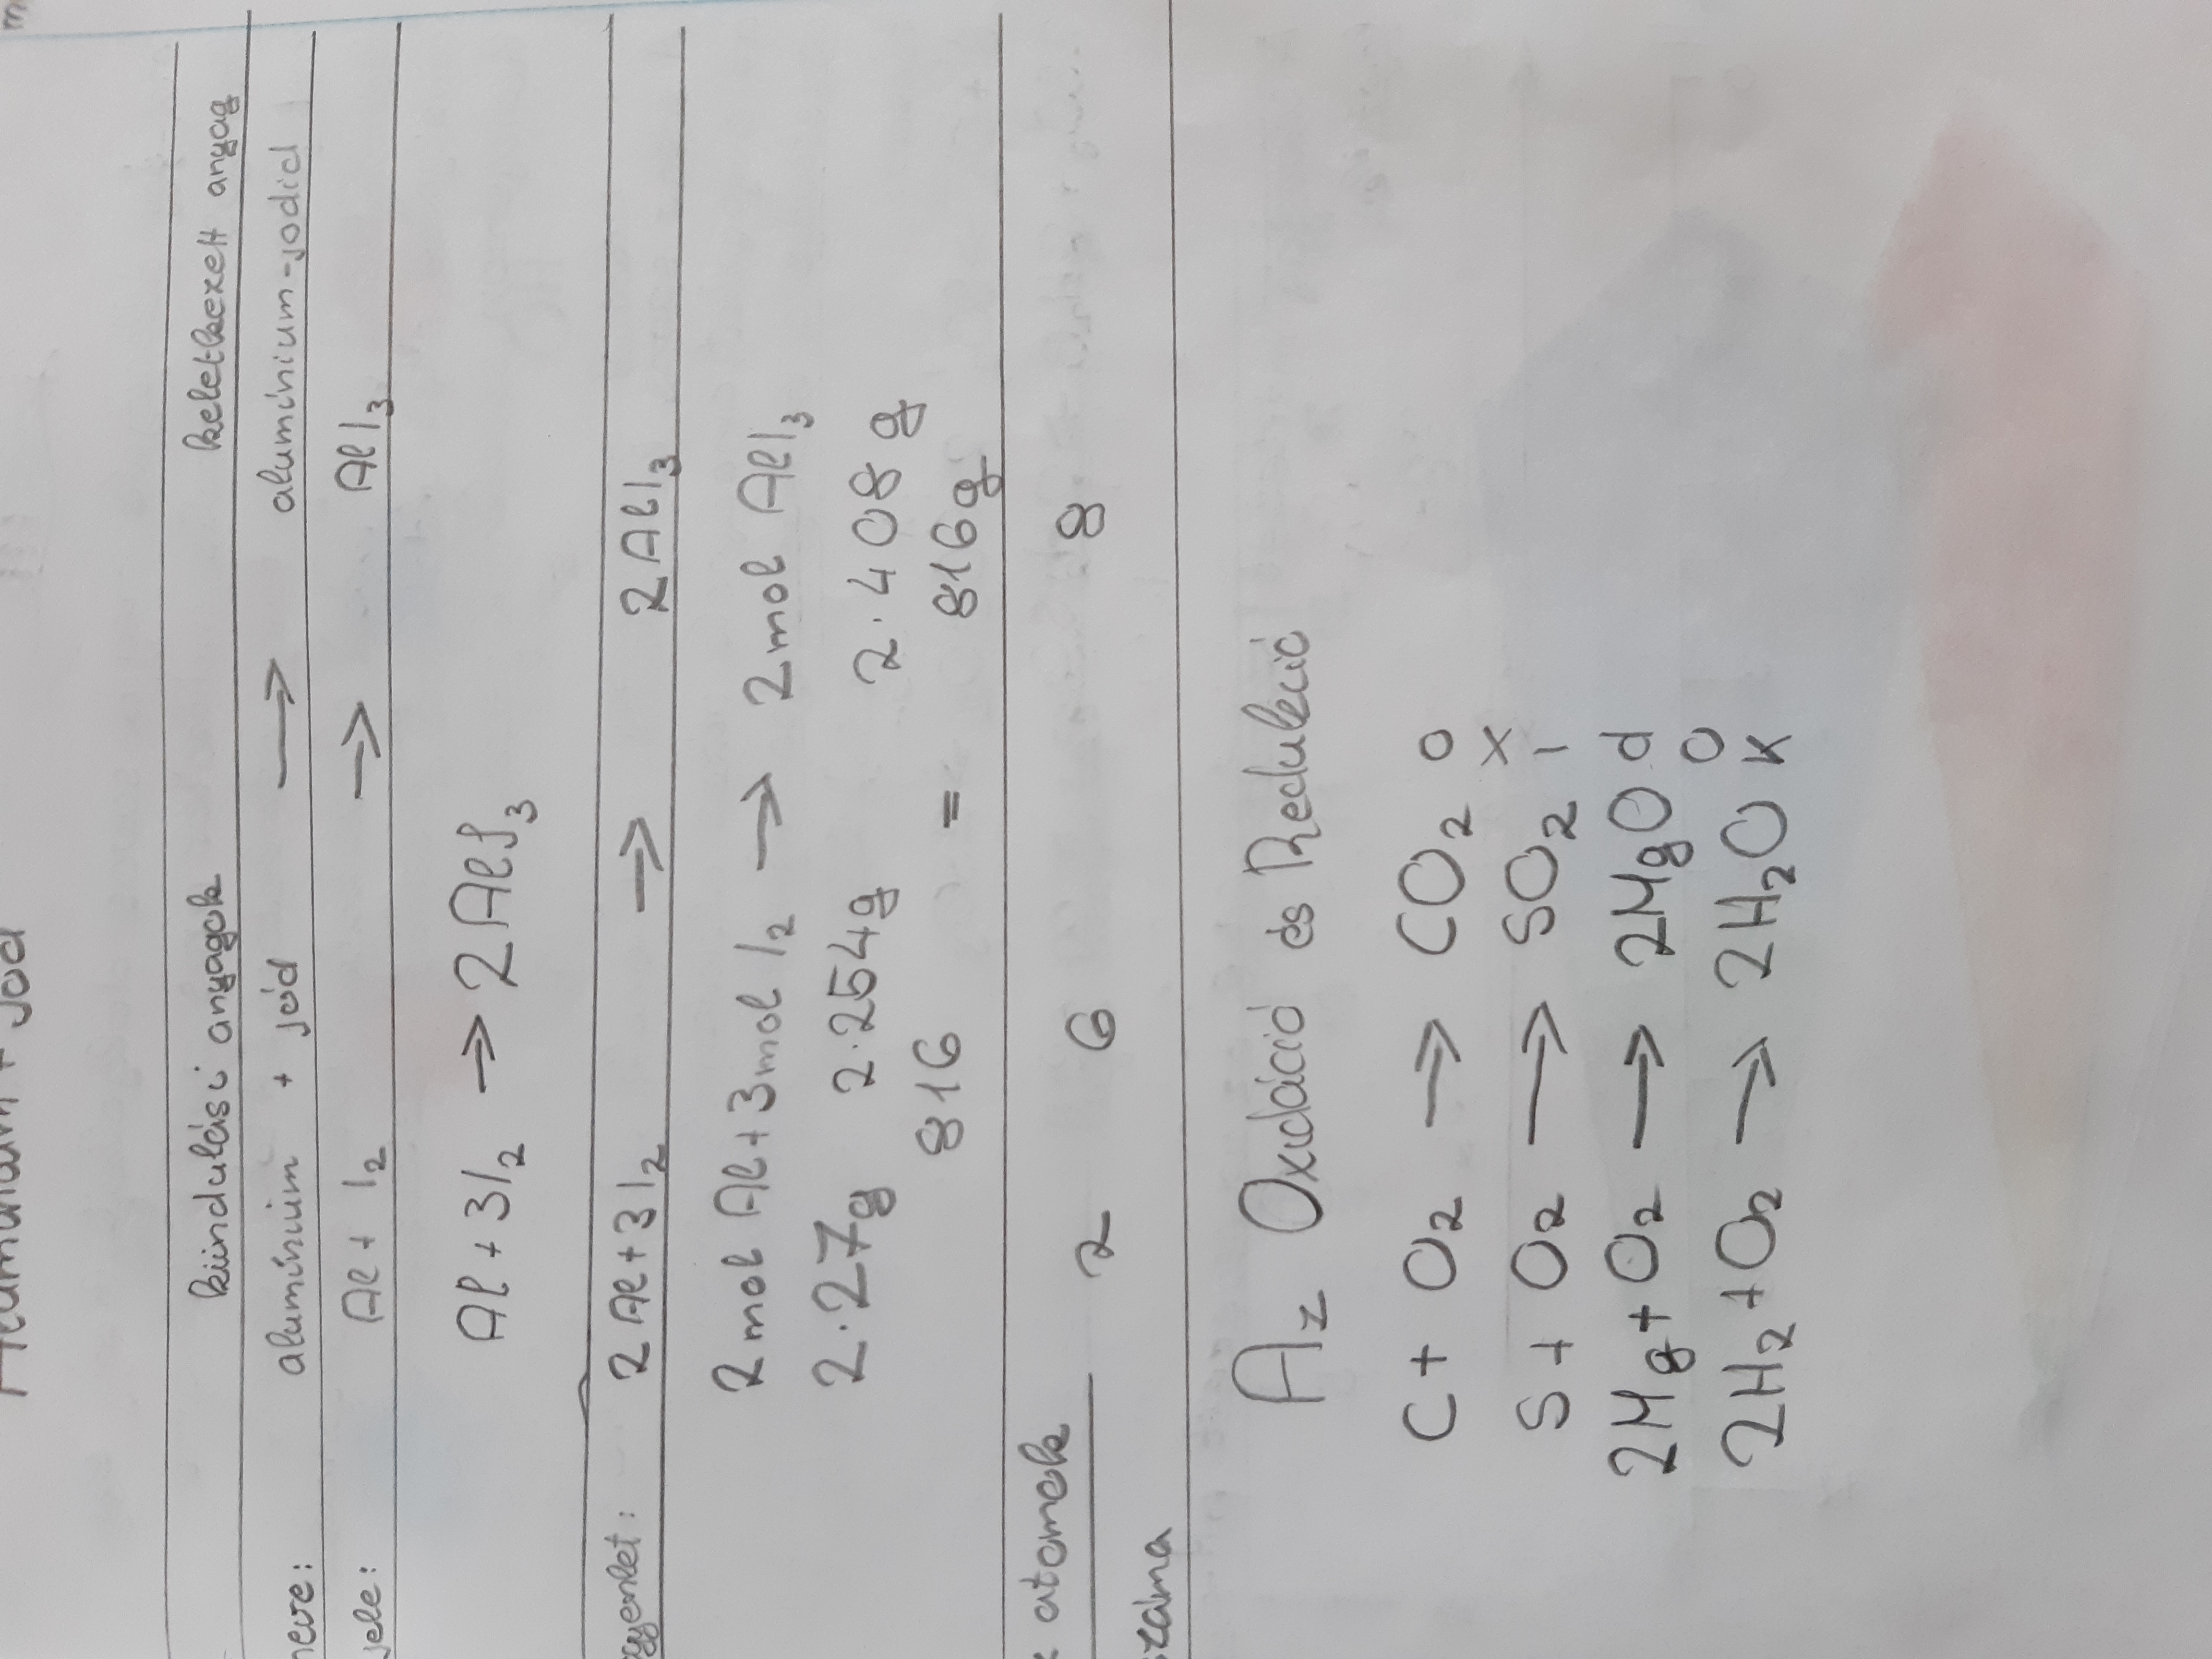 + Jód
kiindulási anyagok keletkezett anyag
neve: alumínium + jód → alumínium-jodid
jele: Al + I₂ → AlI₃
Al + 3I₂ → 2AlI₃
gyenlet: 2Al + 3I₂ → 2AlI₃
2mol Al + 3mol I₂ → 2mol AlI₃
2·27g 2·254g 2·408g
816 = 816g
atomok 2 6 8
száma
Az Oxidáció és Redukció
C + O₂ → CO₂ O
S + O₂ → SO₂ X I
2Mg + O₂ → 2MgO d
2H₂ + O₂ → 2H₂O O K